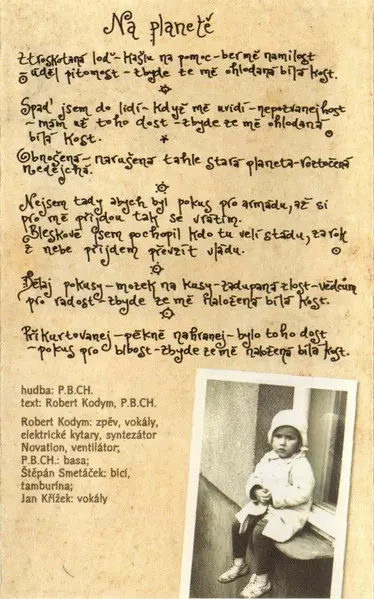 Na planetě
Ztroskotaná loď - kašlu na pomoc - ber mě na milost
- uděl pitomost - zbyde ze mě ohlodaná bílá kost.
Spad' jsem do lidí - když mě uvidí - nepozvanej host
- mám už toho dost - zbyde ze mě ohlodaná
bílá kost.
Obnošená - narušená tahle stará planeta - roztočená
nedejchá.
Nejsem tady abych byl pokus pro armádu, až si
pro mě přijdou tak se vrátím.
Bleskově jsem pochopil kdo tu velí stádu, za rok
z nebe přijdem převzít vládu.
Dělaj pokusy - mozek na kusy - zadupaná zlost - vědcům
pro radost - zbyde ze mě naložená bílá kost.
Přikurtovanej - pěkně nahranej - bylo toho dost
- pokus pro blbost - zbyde ze mě naložená bílá kost.
hudba: P.B.CH.
text: Robert Kodym, P.B.CH.
Robert Kodym: zpěv, vokály,
elektrické kytary, syntezátor
Novation, ventilátor;
P.B.CH.: basa;
Štěpán Smetáček: bicí,
tamburína;
Jan Křížek: vokály